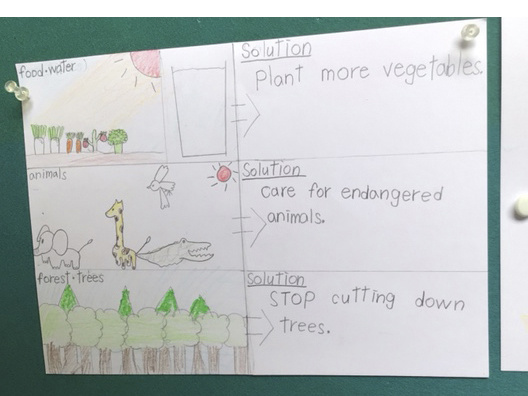 food・water
Solution
Plant more vegetables.
animals
Solution
care for endangered
animals.
forest・trees
Solution
STOP cutting down
trees.